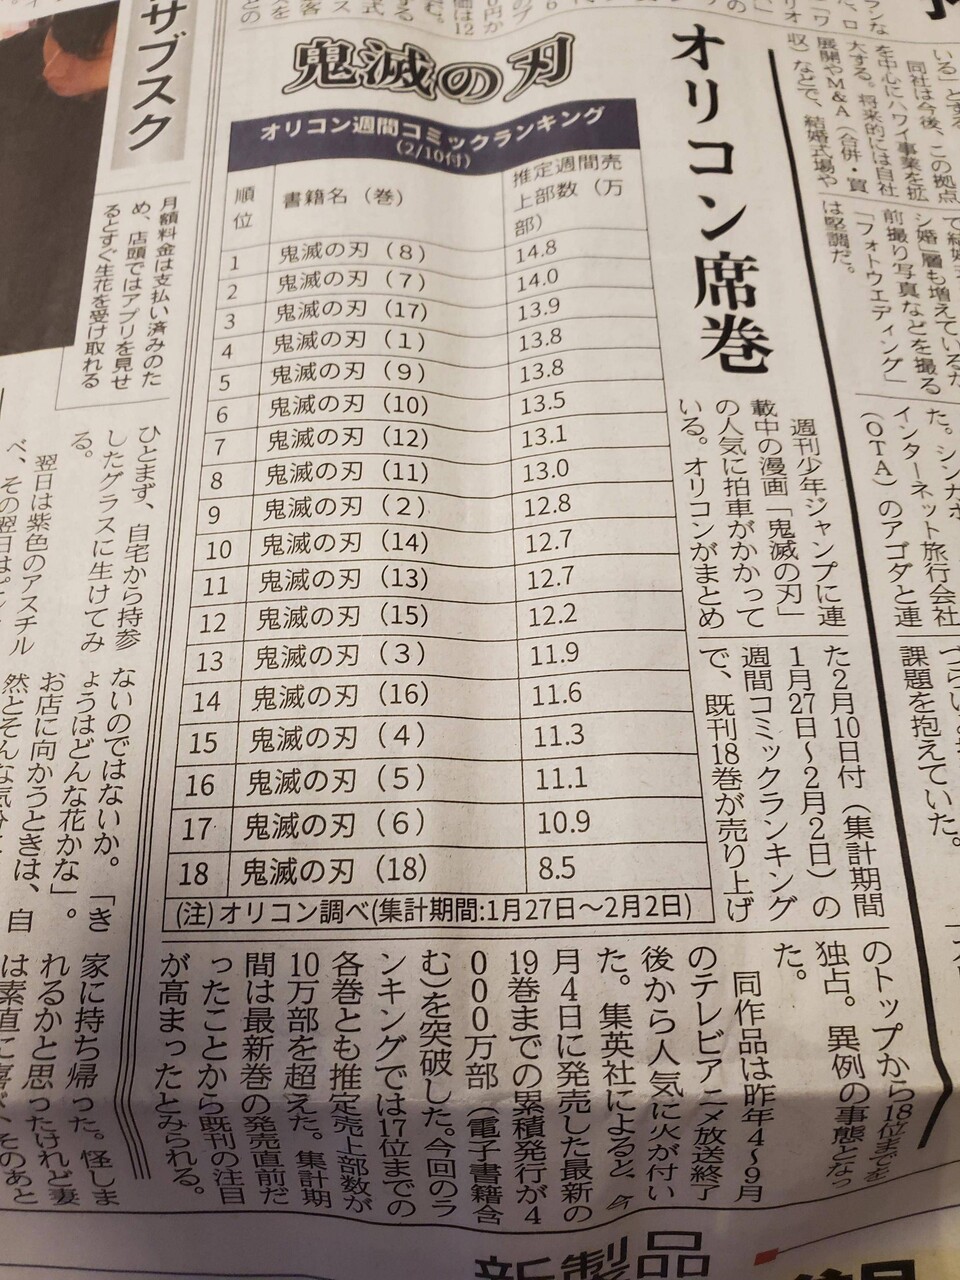 鬼滅の刃
オリコン席巻
オリコン週間コミックランキング
(2/10付)
順位 書籍名（巻） 推定週間売上部数（万部）
1 鬼滅の刃（8） 14.8
2 鬼滅の刃（7） 14.0
3 鬼滅の刃（17） 13.9
4 鬼滅の刃（1） 13.8
5 鬼滅の刃（9） 13.8
6 鬼滅の刃（10） 13.5
7 鬼滅の刃（12） 13.1
8 鬼滅の刃（11） 13.0
9 鬼滅の刃（2） 12.8
10 鬼滅の刃（14） 12.7
11 鬼滅の刃（13） 12.7
12 鬼滅の刃（15） 12.2
13 鬼滅の刃（3） 11.9
14 鬼滅の刃（16） 11.6
15 鬼滅の刃（4） 11.3
16 鬼滅の刃（5） 11.1
17 鬼滅の刃（6） 10.9
18 鬼滅の刃（18） 8.5
(注)オリコン調べ(集計期間:1月27日〜2月2日)
週刊少年ジャンプに連
載中の漫画「鬼滅の刃」
の人気に拍車がかかって
いる。オリコンがまとめ
た2月10日付（集計期間
1月27日〜2月2日）の
週間コミックランキング
で、既刊18巻が売り上げ
のトップから18位までを
独占。異例の事態となっ
た。
同作品は昨年4〜9月
のテレビアニメ放送終了
後から人気に火が付い
た。集英社によると、
月4日に発売した最新の
19巻までの累積発行が4
000万部（電子書籍含
む）を突破した。今回のラ
ンキングでは17位までの
各巻とも推定売上部数が
10万部を超えた。集計期
間は最新巻の発売直前だ
ったことから既刊の注目
が高まったとみられる。
いる」とする。
同社は今後、この拠点
を中心にハワイ事業を拡
大する。将来的には自社
展開やM&A（合併・買
収）などで、結婚式場や
シ婚」層も増えているが
前撮り写真などを撮る
「フォトウエディング」
は堅調だ。
インターネット旅行会社
（OTA）のアゴダと連
課題を抱えていた。
サブスク
月額料金は支払い済みのた
め、店頭ではアプリを見せ
るとすぐ生花を受け取れる
ひとまず、自宅から持参
したグラスに生けてみ
る。
翌日は紫色のアスチル
ないのではないか。「き
ょうはどんな花かな」。
お店に向かうときは、自
家に持ち帰った。怪しま
れるかと思ったけれど妻
新製品